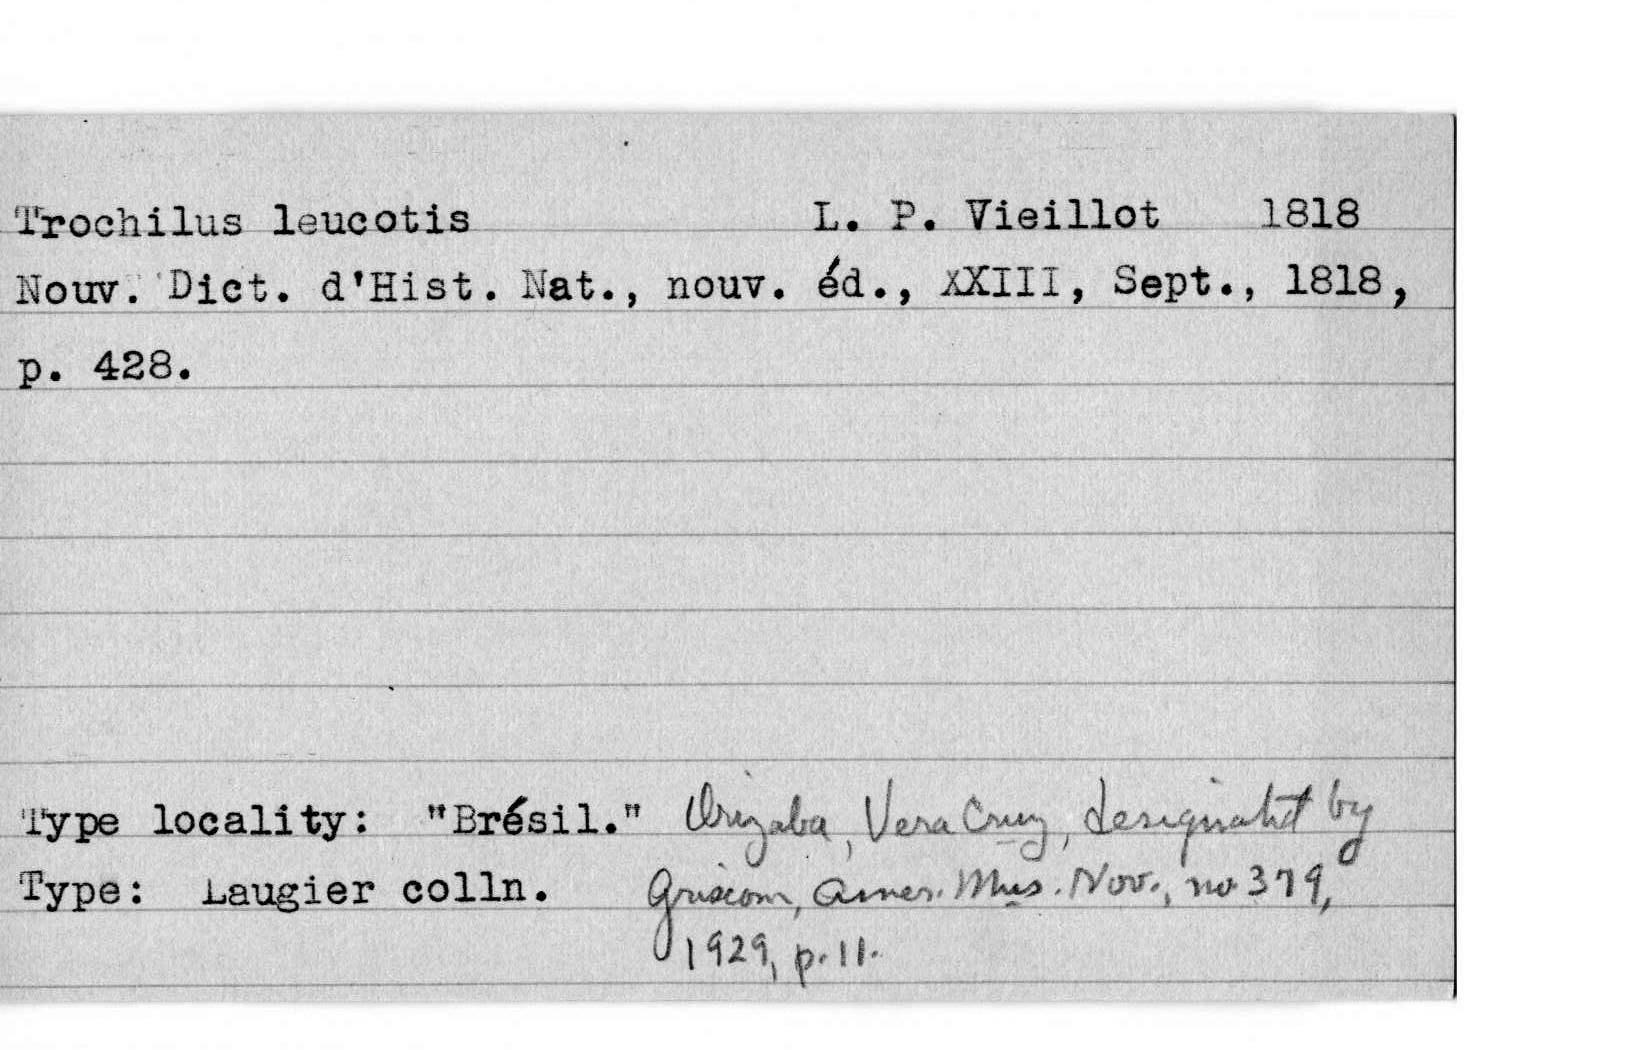 Trochilus leucotis L. P. Vieillot 1818
Nouv. Dict. d'Hist. Nat., nouv. éd., XXIII, Sept., 1818,
p. 428.
Type locality: "Brésil." Orizaba, Vera Cruz, designated by
Type: Laugier colln. Griscom, Amer. Mus. Nov., no 379,
1929, p. 11.